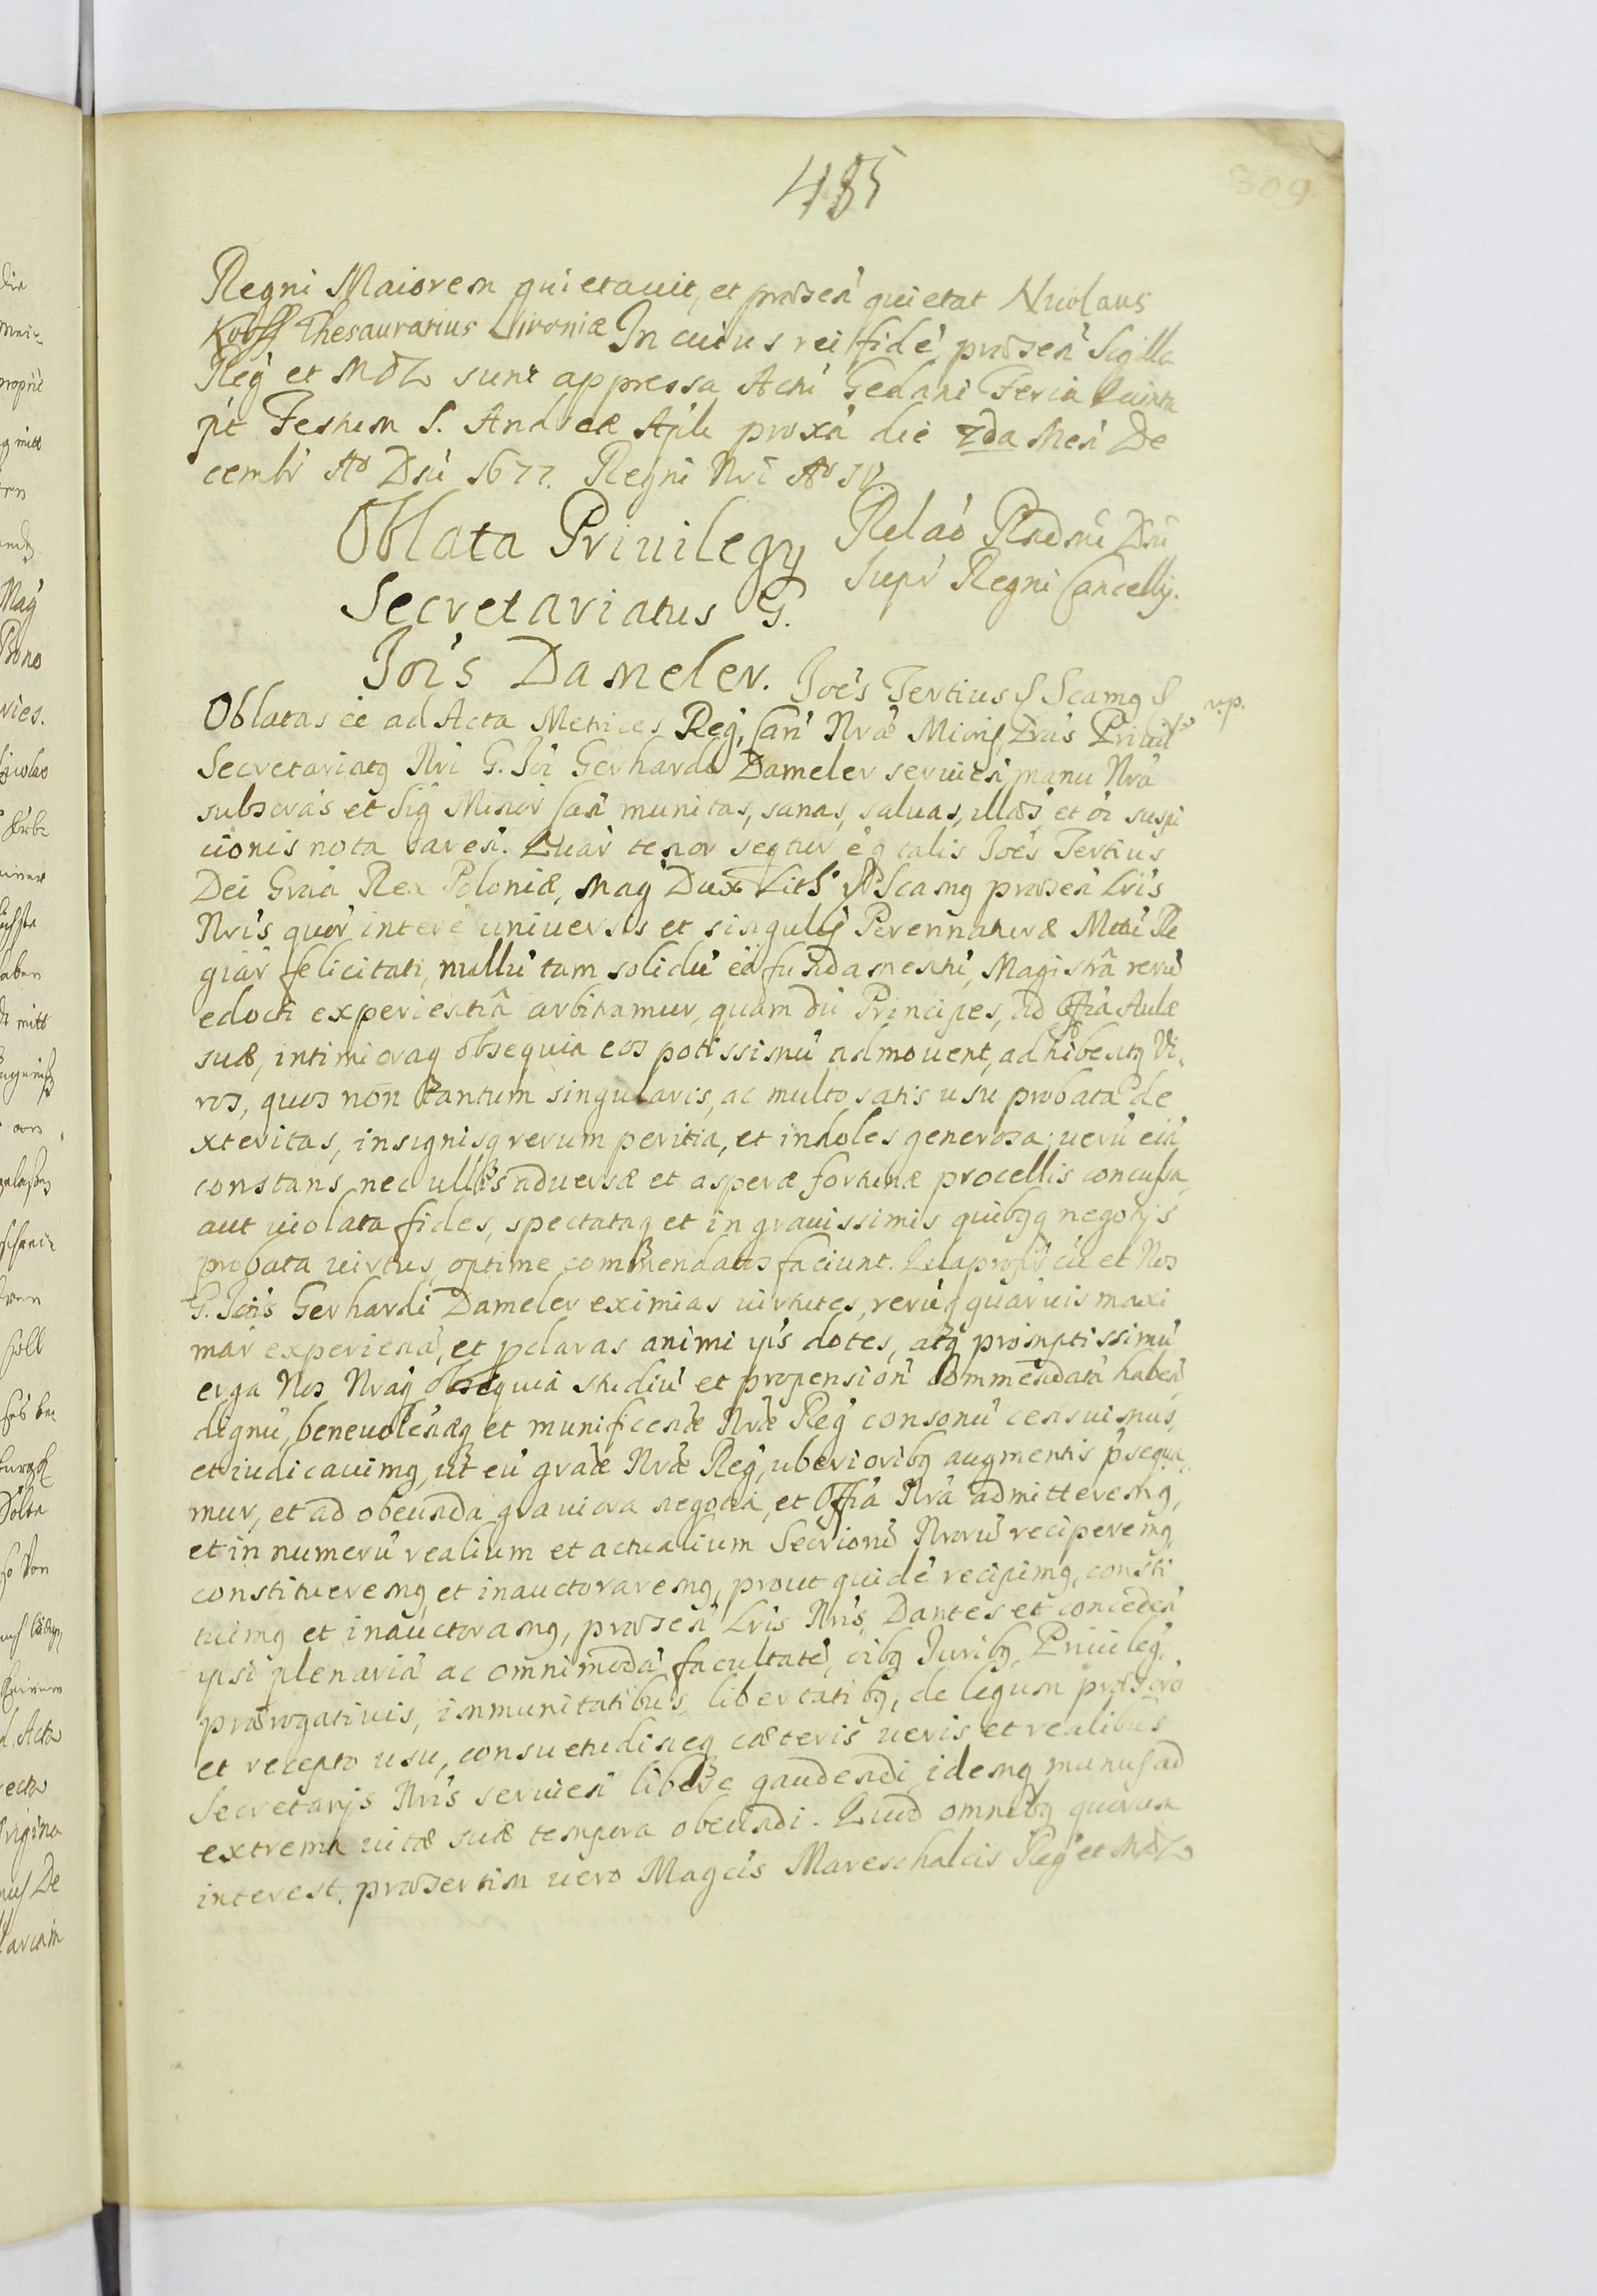 485
309
Regni Maiorem quietauit, et præsen̄ quietat Nicolaus
Korff Thesaurarius Livoniæ In cuius rei fidē præsen̄ Sigilla
Reḡ et MDL sunt appressa Actū Gedani Feria Quinta
pt̄ Festum S. Andreæ Apli proxā die 2da Men̄ De
cembr̄ Ao Dn̄i 1677. Regni Nri Ao IV.
Oblata Priuilegy
Secretariatus G.
Joı̄s Dameler.
Relaō Rn̄dmi Dn̄i
Supr̄ Regni Cancellȳ.
Joēs Tertius S Scamq S
Oblatas eē ad Acta Metrices Reḡ, Can̄ Nræ Mioris Lrās Priuil
Secretariatq Nri G. Joı̄ Gerhardo Dameler seruien̄ manu Nrā
subscrās et Sig Minor̄ Can̄ munitas, sanas, saluas, illæs̄, et oı̄ suspi
cionis nota caren̄. Quar̄ tenor seqtur ē q talis Joēs Tertius
Dei Gratiā Rex Poloniæ, Mag Dux Lith̄ Scamq præsen̄ Lrı̄s
Nrı̄s quor̄ interē uniuersis et singulis Perennaturæ Mttū Re
giar̄ felicitati, nullū tam solidū eē fundamentū, Magistrā rerū
edocti experientiā arbitramur, quam dū Principes, ad Offia Aulæ
suæ, intimioraq obsequia eos potissimū admouent, adhibentq Vi,
ros, quos nōn tantum singularis, ac multo satis usu probata de
xteritas, insignisq rerum peritia, et indoles generosa; uerū etiā
constans nec ullis aduersæ et asperæ fortunæ procellis concussa,
aut uiolata fides, spectataq et in grauissimis quibqq negotijs
probata uirtus, optime commendatos faciunt. Quapropter cū et Nos
G. Joı̄s Gerhardi Dameler eximias uirtutes, rerūq quaruis maxi
mar̄ experienā, et pclaras animi ips̄ dotes, atq promptissimū
erga Nos Nraq obsequia studiū et propension̄ commendatā haben̄
dignū, beneuolenæq et munificenæ Nræ Reḡ consonū censuimus,
et iudicauimq, ut eū graæ Nræ Reḡ, uberioribq augmentis pseque
mur, et ad obeunda grauiora negotia, et Offia Nrā admitteremq,
et in numerū realium et actualium Secrionū Nrorū reciperemq,
constitueremq et inauctoraremq, prout quidē recipimq, consti
tuimq et inauctoramq, præsen̄ Lrı̄s Nrı̄s, Dantes et conceden̄
ipsi plenariā ac omnimodā facultatē, oı̄bq Juribq, Priuileḡ,
prærogatiuis, immunitatibus, libertatibq, de legum præscrō
et recepto usu, consuetudineq cæteris ueris et realibus
Secretarijs Nrı̄s seruien̄ libere gaudendi, idemq munus ad
extrema uitæ suæ tempora obeundi. Quod omnibq quorum
interest, præsertim uero Magcı̄s Mareschalcis Reḡ et MDL